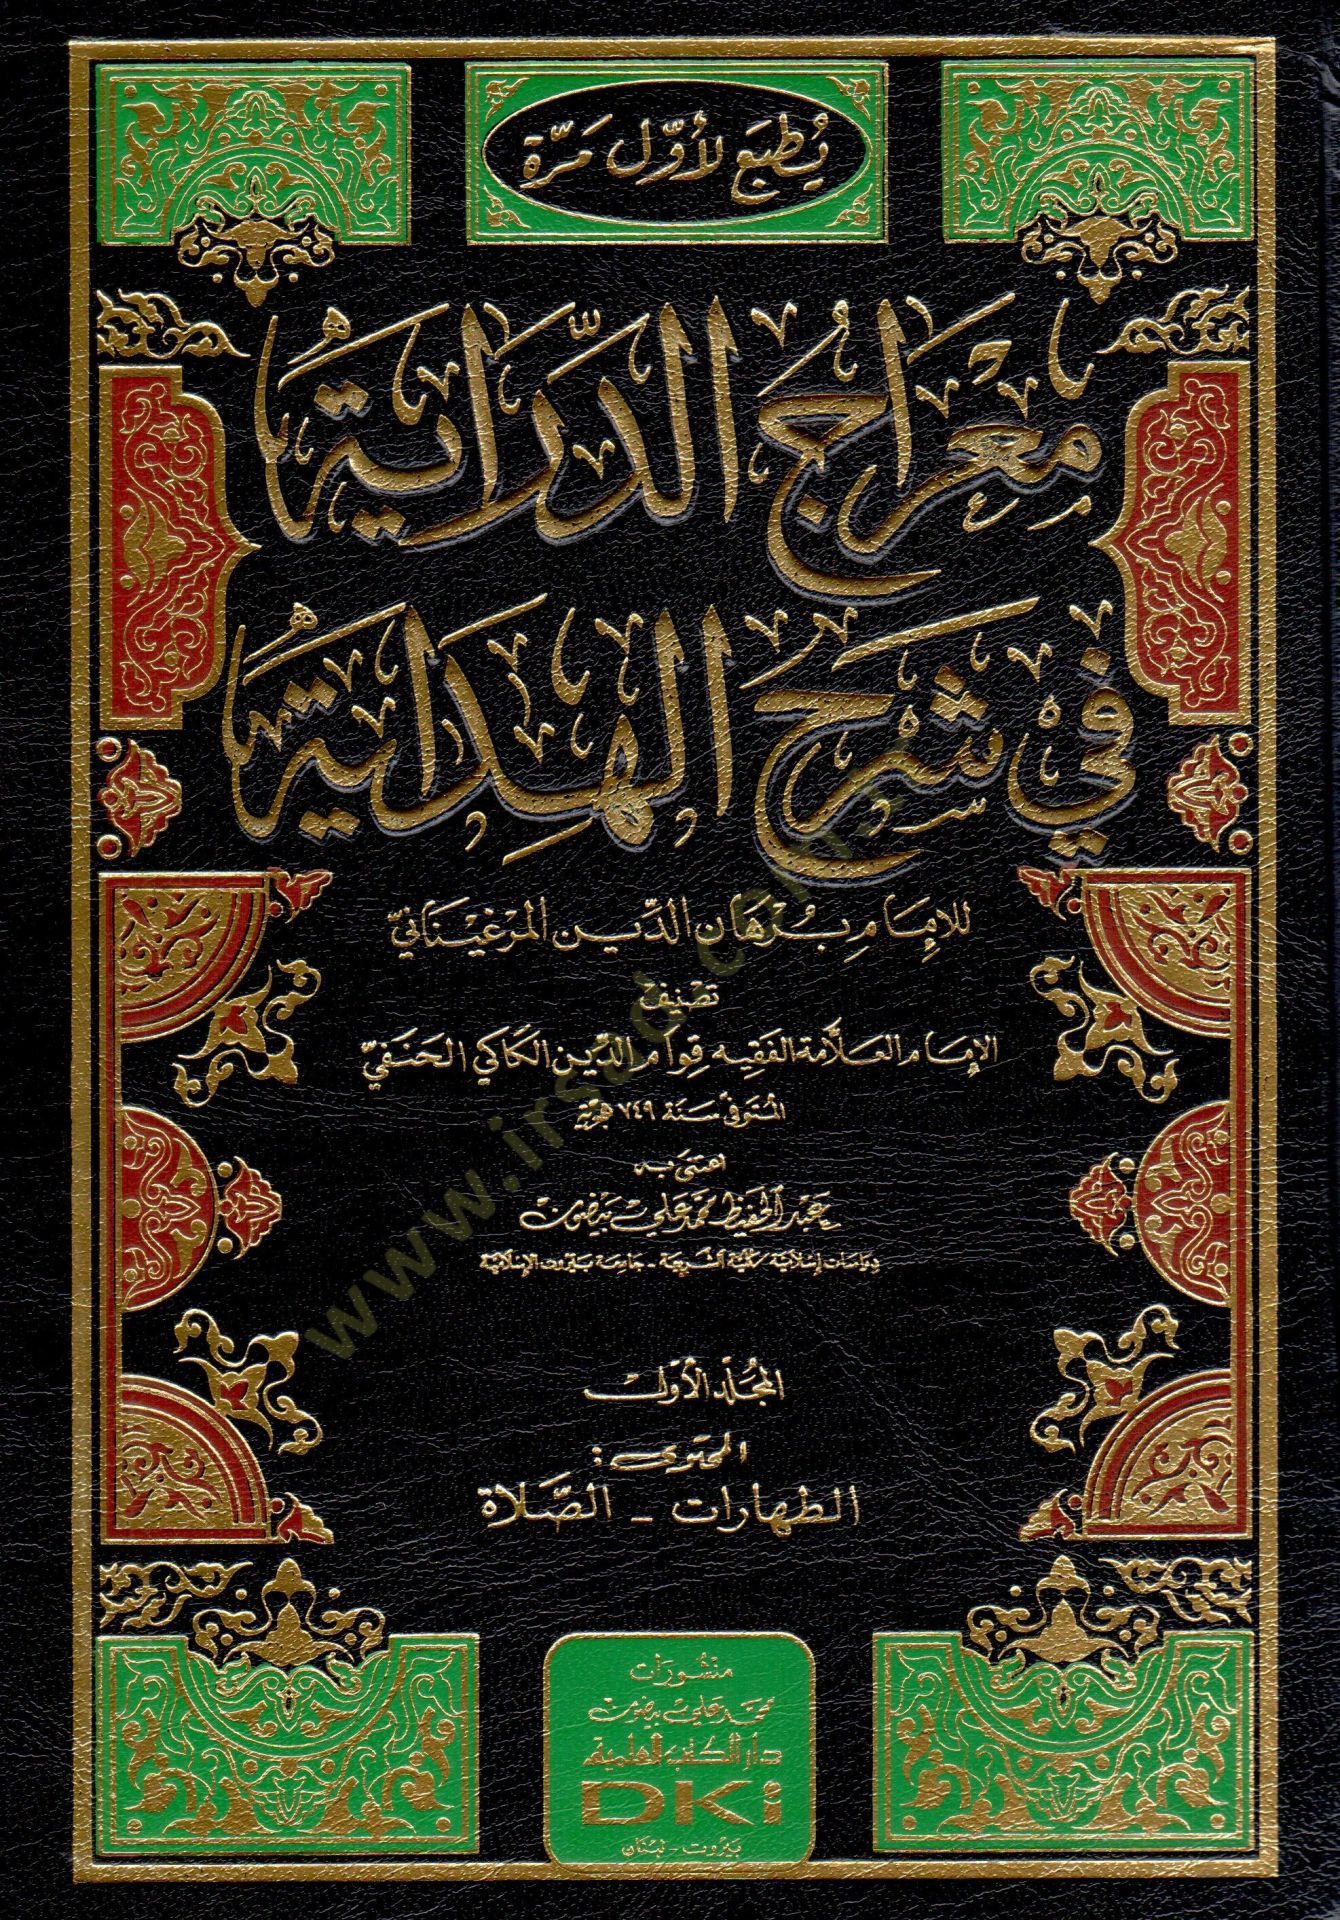 يُطبَع لأوّل مَرّة
مِعْرَاجُ الدِّرَايَة
فِي شَرْحِ الهِدَايَة
للإِمَام بُرهَان الدِّين المرغينَانيّ
تصنيف
الإمَام العلّامَة الفَقِيه قِوام الدِّين الكاكي الحَنَفيّ
المتوفى سَنَة ٧٤٩ هجرية
اعتنى به
عبد الحفيظ محمد علي بيضون
دراسات إسلامية كلية الشريعة - جامعة بيروت الإسلامية
المجلّد الأوّل
المحتوى :
الطهارات - الصَّلاة
منشورات
محمد علي بيضون
دار الكتب العلمية
DKi
بيروت - لبنان
www.irsad.com.tr